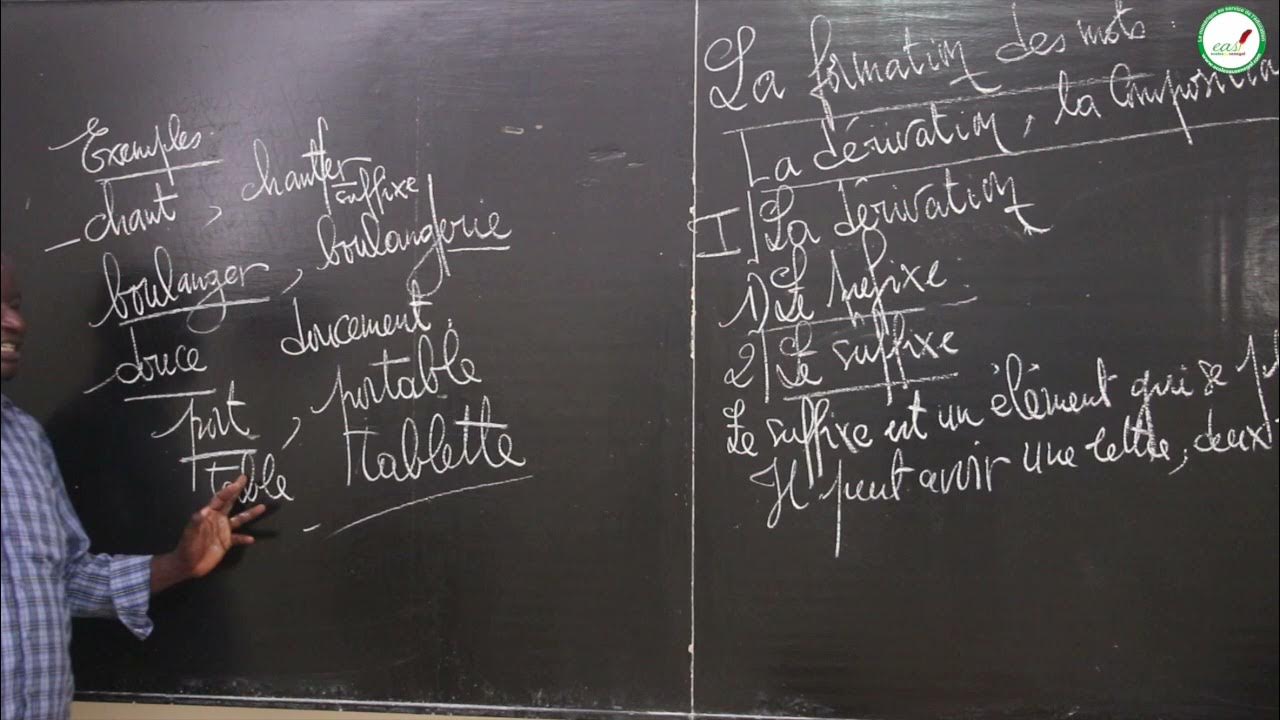 Exemples:
- chant, chanter
suffixe
boulanger, boulangerie
- douce doucement.
port, portable
table tablette
La formation des mots:
La dérivation, la Composition
I La dérivation
1) Le préfixe
2) Le suffixe
Le suffixe est un élément qui se
Il peut avoir une lettre, deux
easi
Le numérique au service de l'éducation